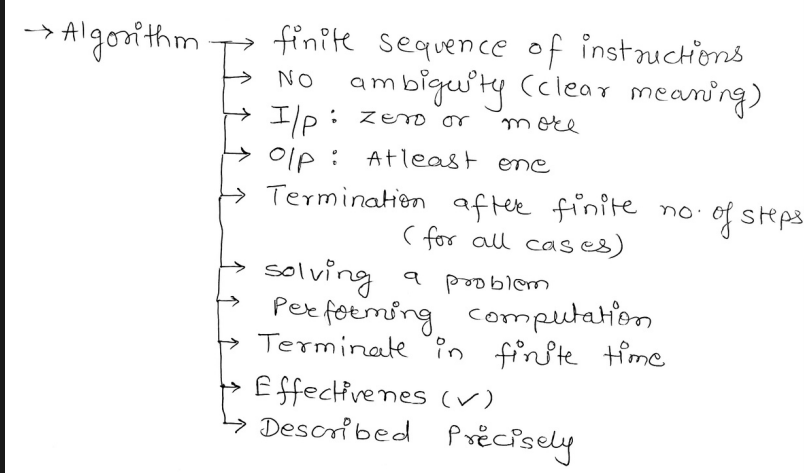 → Algorithm → finite sequence of instructions
→ NO ambiguity (clear meaning)
→ I/p : zero or more
→ O/p : Atleast one
→ Termination after finite no. of steps
(for all cases)
→ solving a problem
→ Performing computation
→ Terminate in finite time
→ Effectivenes (✓)
→ Described Precisely